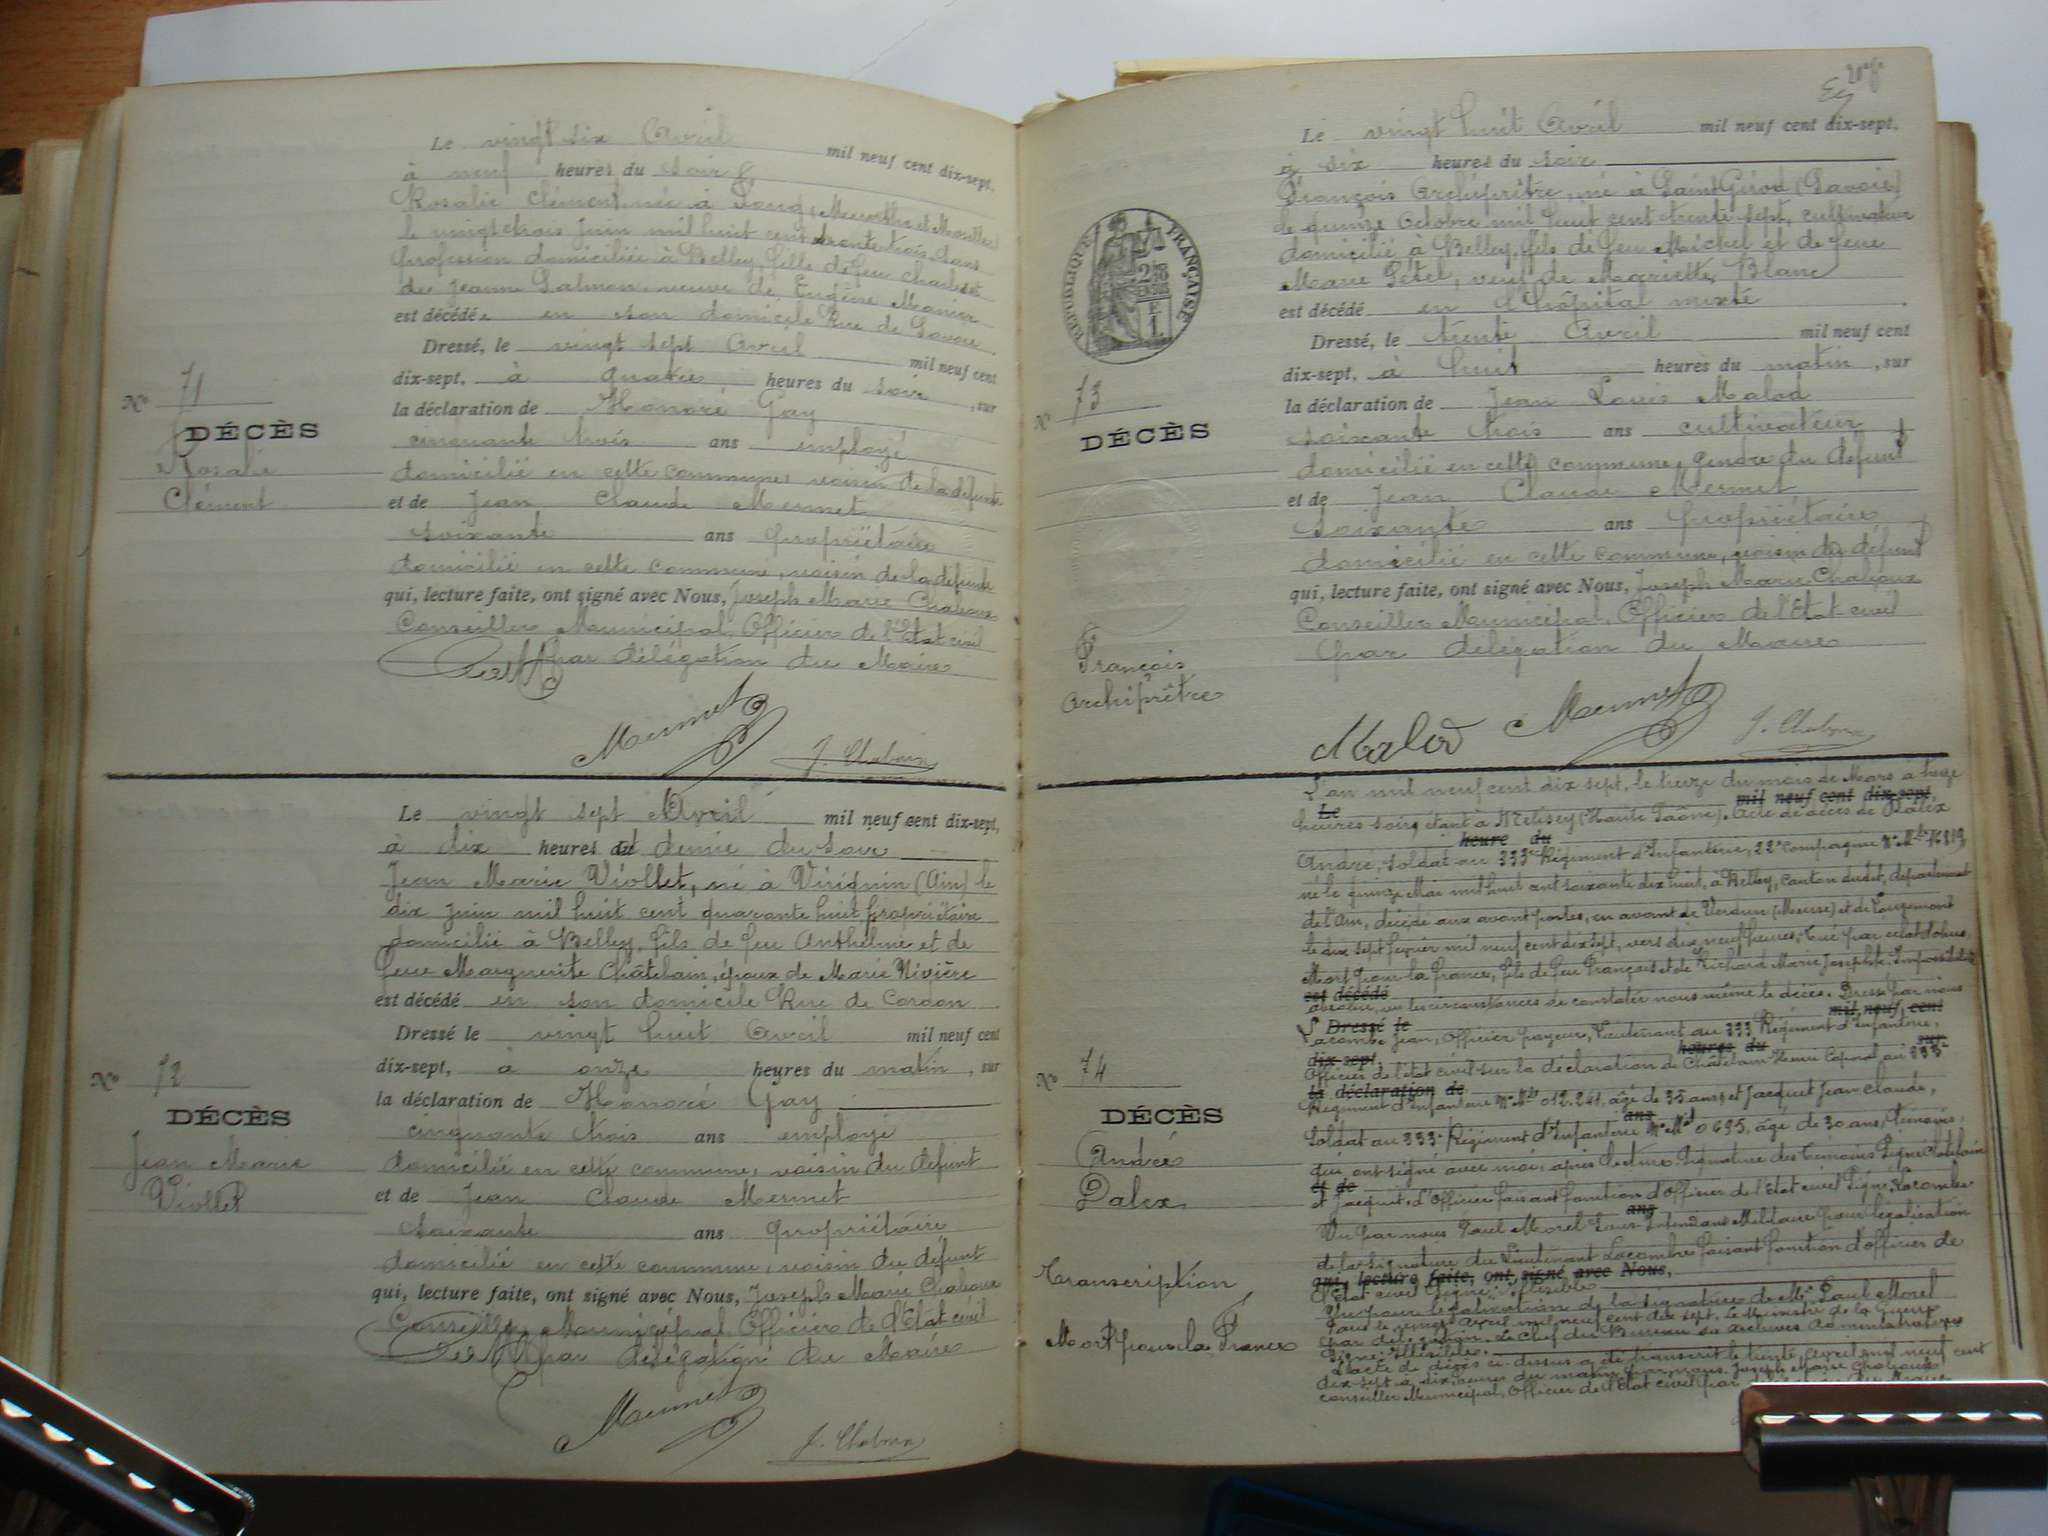 Le vingt six Avril mil neuf cent dix-sept,
à neuf heures du soir
Rosalie Clément née à (Meurthe et Moselle)
le vingt trois Juin mil huit cent trente trois, sans
profession domiciliée à Belley, fille de feu Charles et
de Jeanne Salmon, veuve de Eugène Manier
est décédée en son domicile Rue de Savoie.
Dressé, le vingt sept Avril mil neuf cent
dix-sept, à quatre heures du soir, sur
la déclaration de Honoré Gay
cinquante trois ans employé
domicilié en cette commune, voisin de la défunte
et de Jean Claude Mermet
soixante ans propriétaire
domicilié en cette commune, voisin de la défunte
qui, lecture faite, ont signé avec Nous, Joseph Marie Chaboux
Conseiller Municipal, Officier de l'Etat civil
par délégation du Maire
Mermet
J. Chaboux
N° 71
DÉCÈS
Rosalie
Clément
Le vingt sept Avril mil neuf cent dix-sept,
à dix heures et demie du soir
Jean Marie Viollet, né à Virignin (Ain) le
dix Juin mil huit cent quarante huit propriétaire
domicilié à Belley, fils de feu Anthelme et de
feue Marguerite Châtelain, époux de Marie Nivière
est décédé en son domicile Rue de Cordon
Dressé le vingt huit Avril mil neuf cent
dix-sept, à onze heures du matin, sur
la déclaration de Honoré Gay
cinquante trois ans employé
domicilié en cette commune, voisin du défunt
et de Jean Claude Mermet
soixante ans propriétaire
domicilié en cette commune, voisin du défunt
qui, lecture faite, ont signé avec Nous, Joseph Marie Chaboux
Conseiller Municipal, Officier de l'Etat civil
par délégation du Maire
Mermet
J. Chaboux
N° 72
DÉCÈS
Jean Marie
Viollet
Le vingt huit Avril mil neuf cent dix-sept,
à six heures du soir
François Archiprêtre, né à Saint Girod (Savoie)
le quinze Octobre mil huit cent trente sept, cultivateur
domicilié à Belley, fils de feu Michel et de feue
Marie Pétel, veuf de Mariette Blanc
est décédé en l'hôpital mixte
Dressé, le trente Avril mil neuf cent
dix-sept, à huit heures du matin, sur
la déclaration de Jean Louis Malod
soixante trois ans cultivateur
domicilié en cette commune, gendre du défunt
et de Jean Claude Mermet
soixante ans propriétaire
domicilié en cette commune, voisin du défunt
qui, lecture faite, ont signé avec Nous, Joseph Marie Chaboux
Conseiller Municipal, Officier de l'Etat civil
par délégation du Maire
Malod Mermet J. Chaboux
RÉPUBLIQUE FRANÇAISE
N° 73
DÉCÈS
François
Archiprêtre
L'an mil neuf cent dix sept, le treize du mois de Mars à treize
Le mil neuf cent dix-sept,
heures soir, étant à Mélisey (Haute Saône). Acte de décès de Dalex
heure du
André, soldat au 333e Régiment d'Infanterie, 22e Compagnie
né le quinze Mai mil huit cent soixante dix huit, à Belley, canton dudit, département
de l'Ain, décédé aux avant postes, en avant de Verdun (Meuse)
le dix sept février mil neuf cent dix sept, vers dix neuf heures, tué par éclat d'obus,
Mort pour la France, fils de feu François et de Richard Marie Josephte.
est décédé
en les circonstances de constater nous même le décès. Dressé par nous
Dressé le mil neuf cent
Lacombe Jean, Officier payeur, Lieutenant au 333 Régiment d'Infanterie,
dix sept heures du sur
Officier de l'état civil sur la déclaration de Châtelain Caporal au 333e
la déclaration de
Régiment d'Infanterie N° Mle 012.241, âgé de 35 ans, et Jacquet Jean Claude,
ans
Soldat au 333e Régiment d'Infanterie N° Mle 0695, âgé de 30 ans, témoins
qui ont signé avec moi, après lecture. Signature des témoins Signé Châtelain
et de
et Jacquet. L'Officier faisant fonction d'Officier de l'Etat civil Signé Lacombe
ans
Vu par nous Paul Morel Sous Intendant Militaire pour légalisation
de la signature du Lieutenant Lacombe faisant fonction d'officier de
qui, lecture faite, ont signé avec Nous,
l'Etat civil
Vu pour légalisation de la signature de Mr Paul Morel
Paris le vingt Avril mil neuf cent dix sept. Le Ministre de la Guerre
par délégation. Le Chef du Bureau des Archives Administratives
Signé: Illisible.
L'acte de décès ci-dessus a été transcrit le trente Avril mil neuf cent
dix-sept à dix heures du matin par nous Joseph Marie Chaboux
conseiller Municipal, Officier de l'Etat civil par
N° 74
DÉCÈS
André
Dalex
Transcription
Mort pour la France